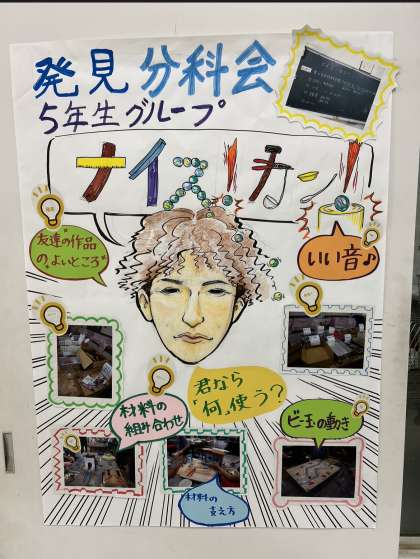 発見 分科会
5年生グループ
ナイス!カン!
友達の"作品
の"よいところ"
いい音♪
君なら
「何」使う?
材料の
組み合わせ
ビー玉の動き
材料の
支え方